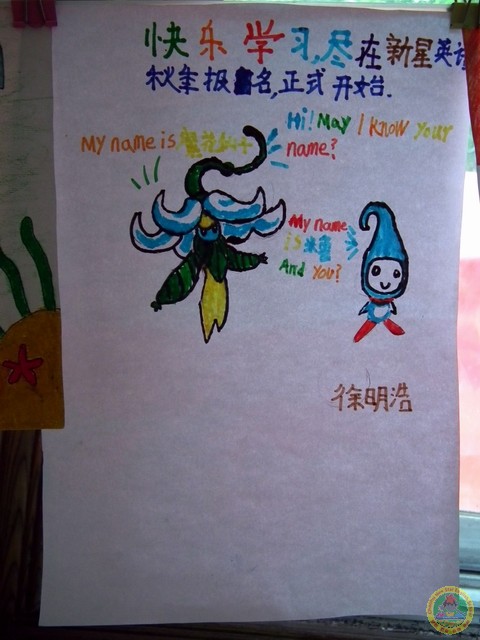 快乐学习,尽在新星英语
秋季报名,正式开始.
Hi! May I Know your
name?
My name is
My name
is 米鲁
And You?
徐明浩